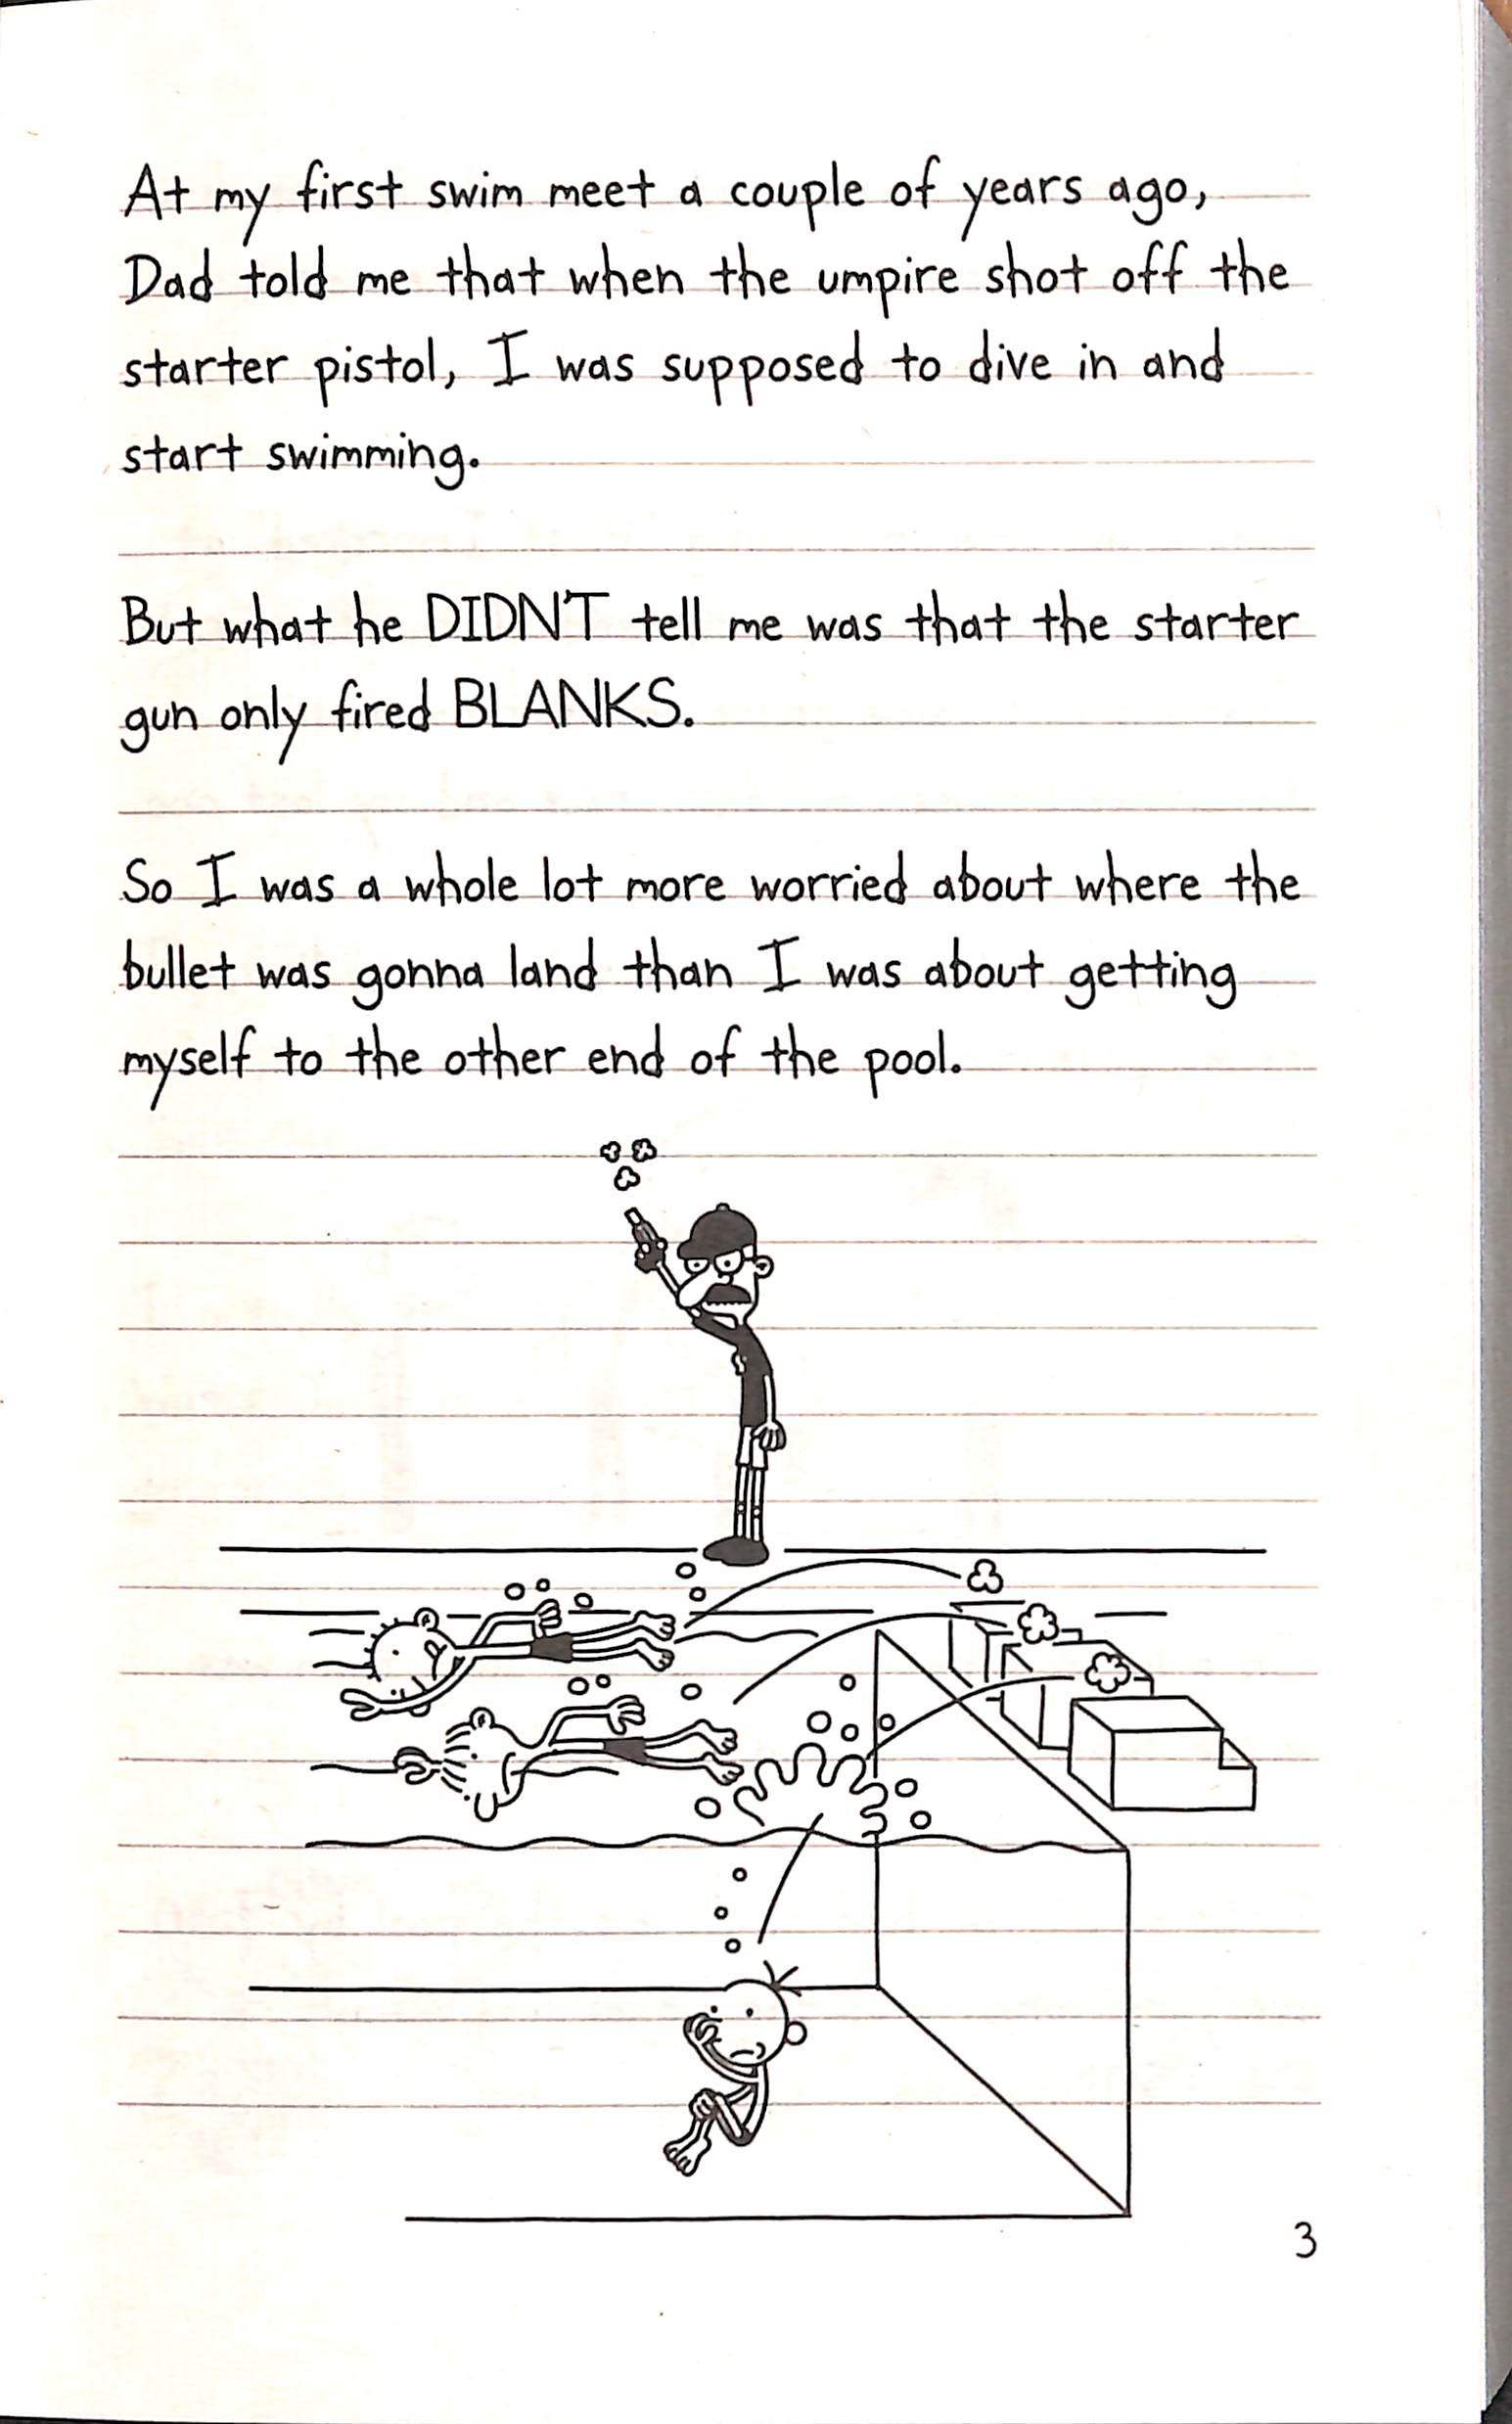 At my first swim meet a couple of years ago,
Dad told me that when the umpire shot off the
starter pistol, I was supposed to dive in and
start swimming.
But what he DIDNT tell me was that the starter
gun only fired BLANKS.
So I was a whole lot more worried about where the
bullet was gonna land than I was about getting
myself to the other end of the pool.
3